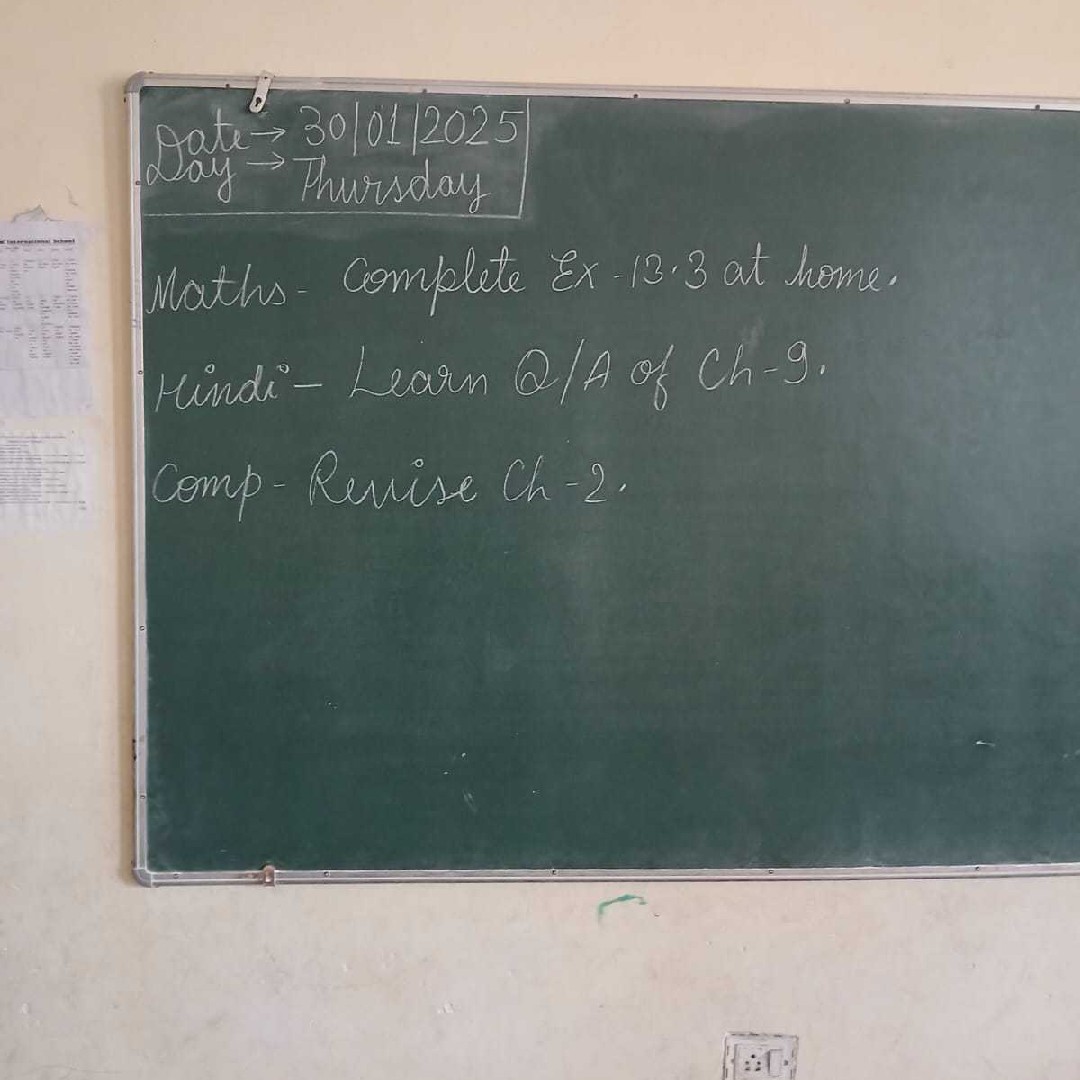 Date → 30/01/2025
Day → Thursday
Maths - Complete Ex - 13.3 at home.
Hindi - Learn Q/A of Ch - 9.
Comp - Revise Ch - 2.
International School